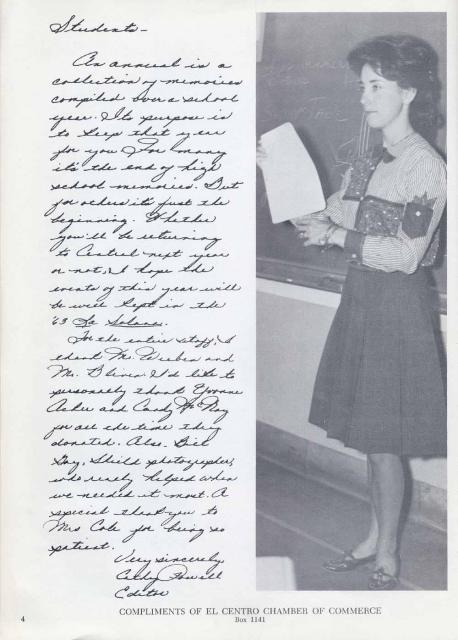 Students-
An annual is a
collection of memories
compiled over a school
year. Its purpose is
to keep that year
for you. For many
it's the end of high
school memories. But
for others it's just the
beginning. Whether
you'll be returning
to Central next year
or not, I hope the
events of this year will
be well kept in the
'63 La Solana.
For the entire staff, I
thank Mr. Weber and
Mr. I'd like to
personally thank Yvonne
Asher and Candy McNay
for all the time they
donated. Also, Bill
Gay, Shield photographer,
who really helped when
we needed it most. A
special thank-you to
Mrs Cole for being so
patient.
Very sincerely
Powell
Editor
4
COMPLIMENTS OF EL CENTRO CHAMBER OF COMMERCE
Box 1141